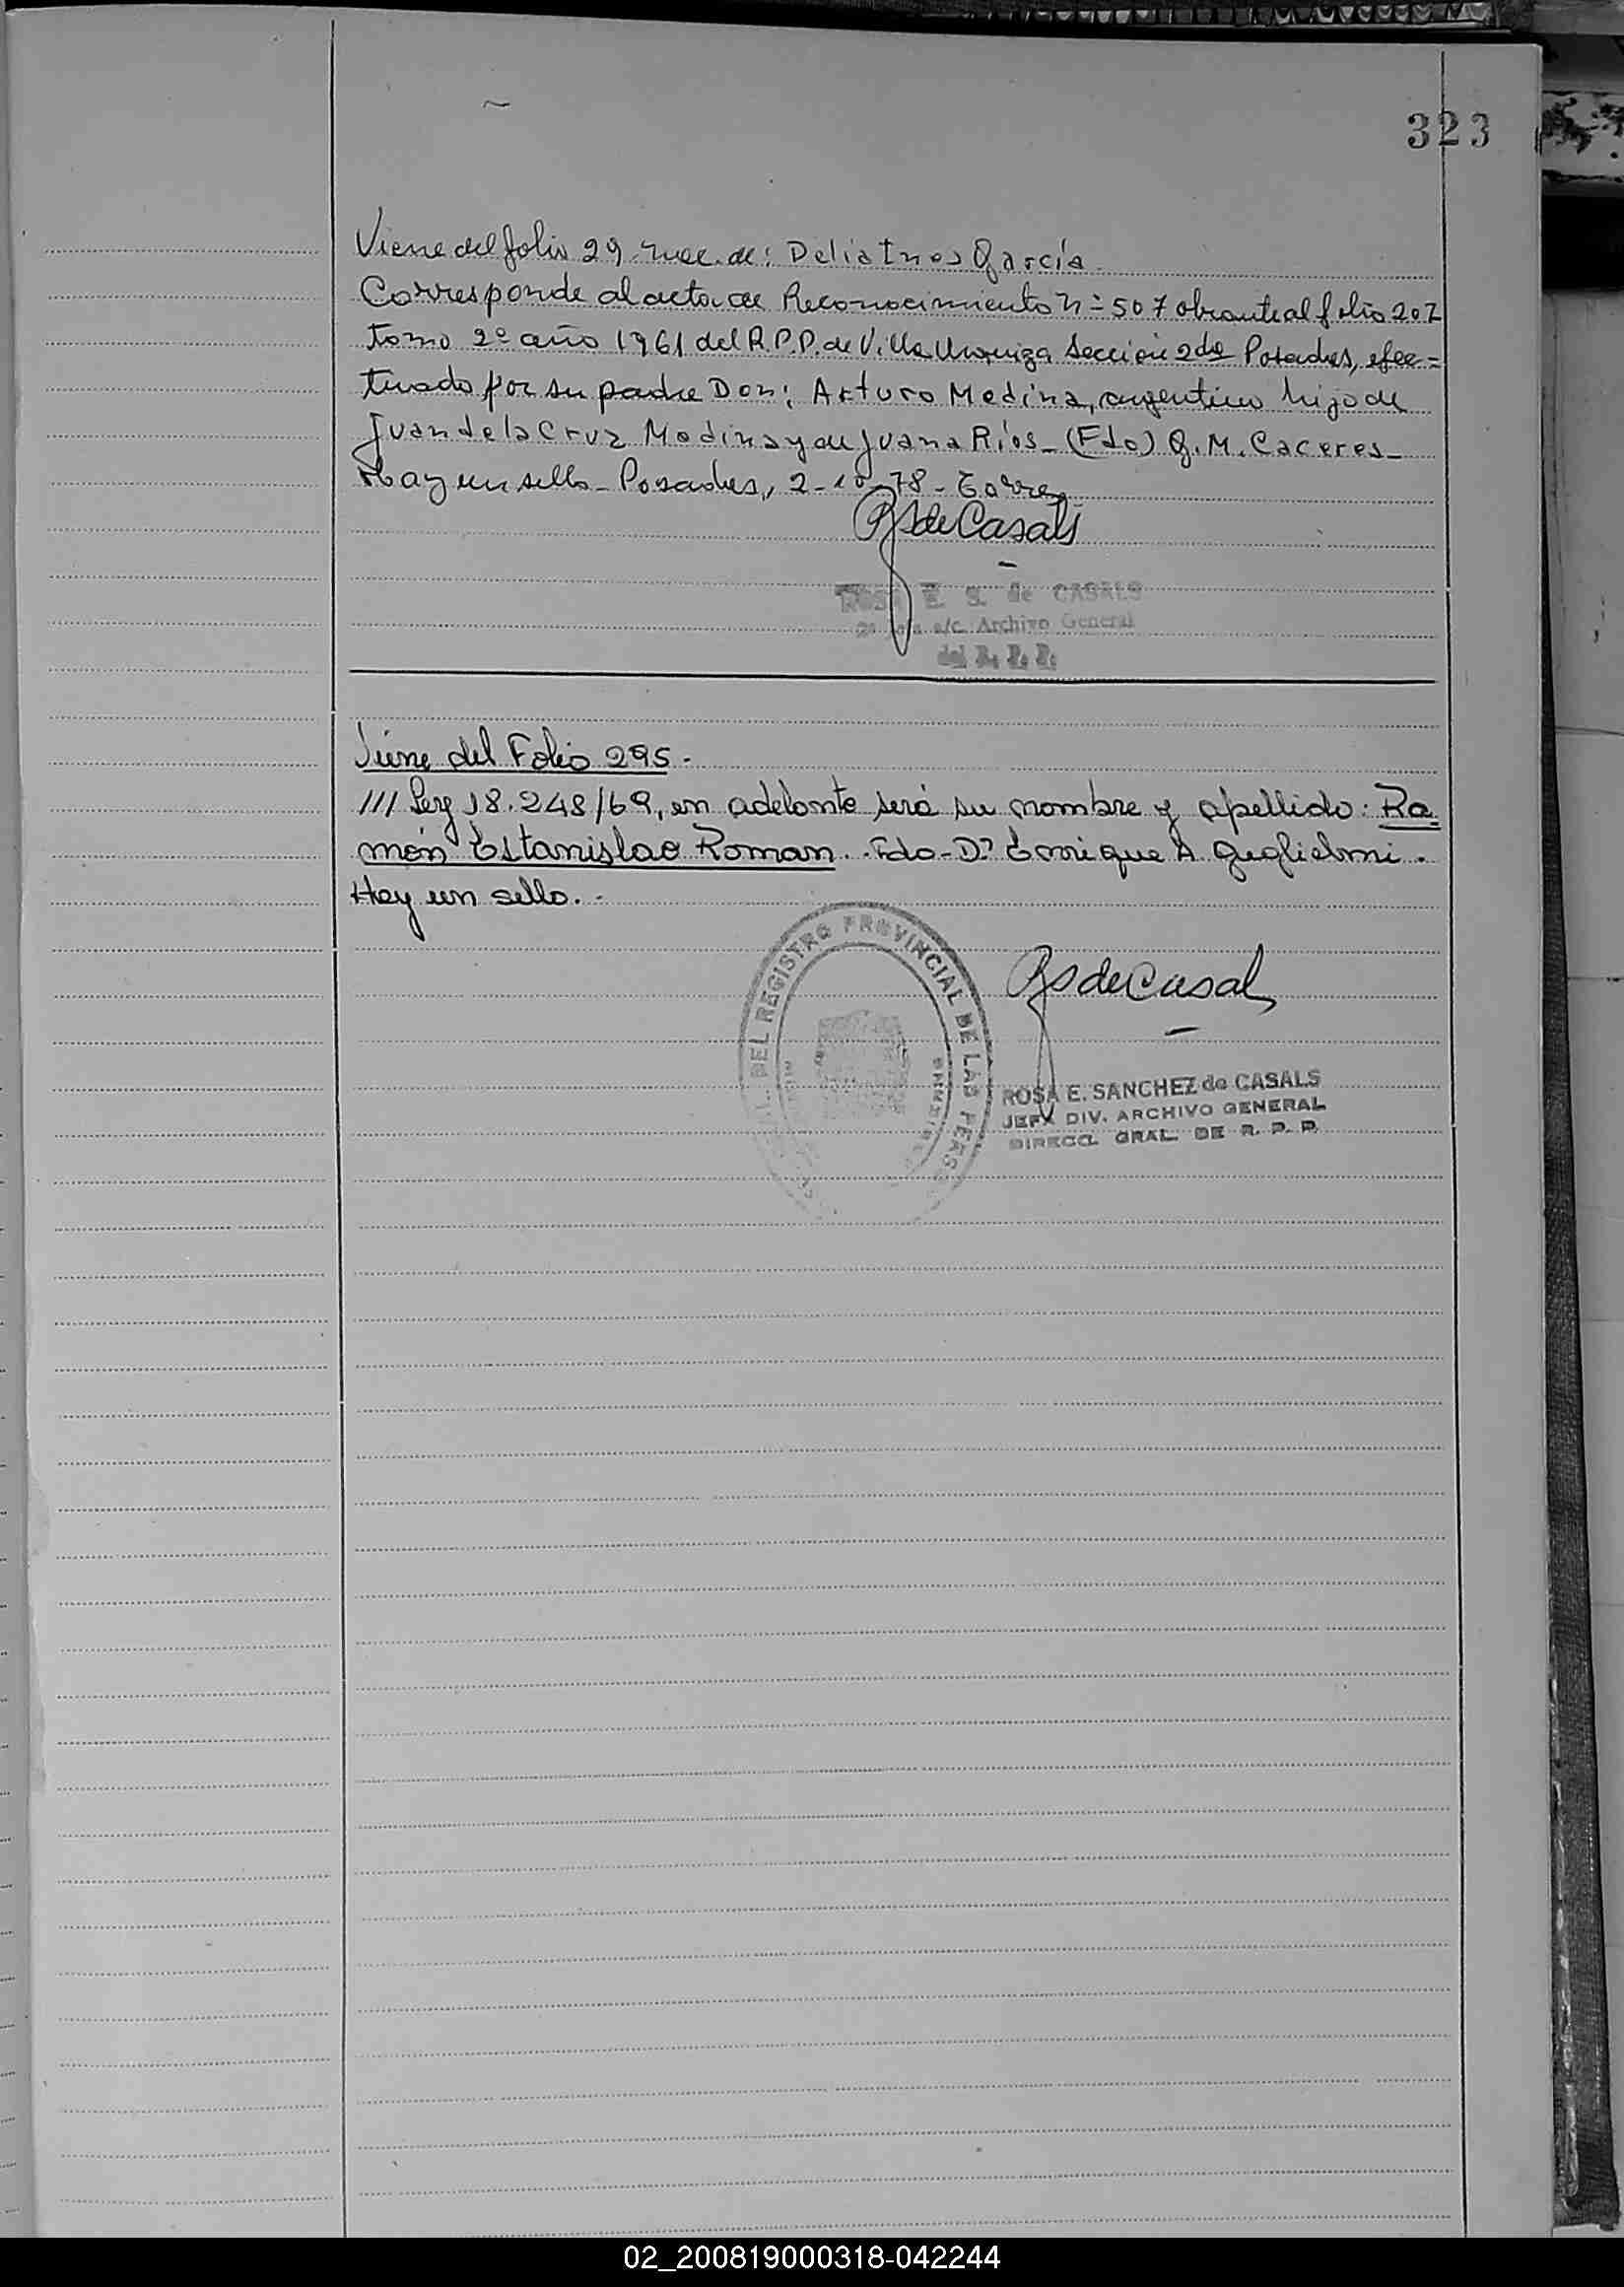 323
Viene del folio 29. nac. de: Delia Ines García.
Corresponde al acta de Reconocimiento nº 507 obrante al folio 207
tomo 2º año 1961 del R.P.P. de Villa Urquiza Sección 2da Posadas, efec=
tuado por su padre Don: Arturo Medina, argentino hijo de
Juan de la Cruz Medina y de Juana Ríos_ (Fdo) G. M. Caceres_
Hay un sello_ Posadas, 2-10-78_ Torres
RSdeCasals
ROSA E. S. de CASALS
2º Jefe a/c. Archivo General
del R. P. P.
Viene del Folio 295.-
/// Ley 18.248/69, en adelante será su nombre y apellido: Ra=
món Estanislao Roman. Fdo- Dr Enrique A Guglielmi.
Hay un sello.-
DEL REGISTRO PROVINCIAL DE LAS PERS
RSdeCasal
ROSA E. SANCHEZ de CASALS
JEFA DIV. ARCHIVO GENERAL
DIRECC. GRAL. DE R. P. P.
02_200819000318-042244